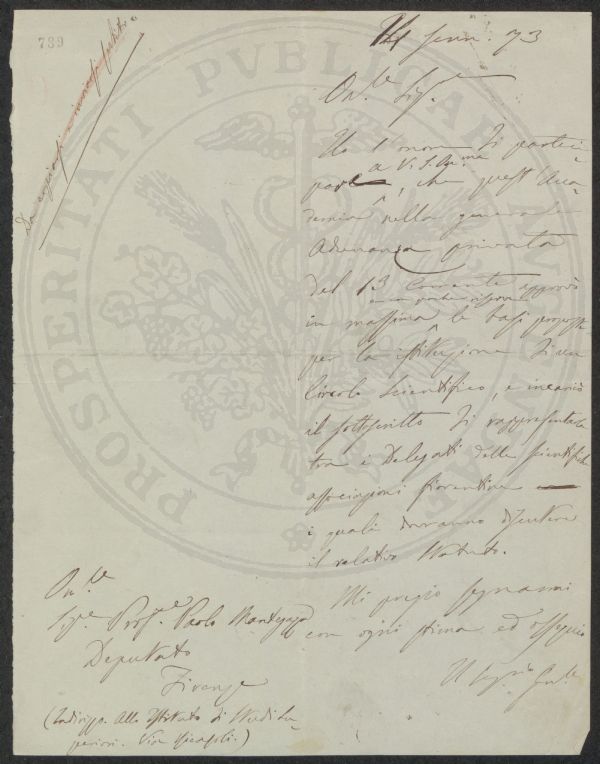 739
PROSPERITATI PVBLICAE AVGENDAE
14 Genn. 73
On.le Sig.e
Ho l'onore di parteci-
pare a V. S. On.ma, che quest'Acca-
demia nella generale
Adunanza privata
del 13 corrente approvò
in massima le basi proposte
per la istituzione di un
Circolo Scientifico, e incaricò
il sottoscritto di rappresentarla
tra i Delegati delle scientifiche
associazioni fiorentine
i quali dovranno discutere
il relativo Statuto.
Mi pregio segnarmi
con ogni stima ed ossequio
Il Seg.rio
On.le
Sig.e Prof.e Paolo Mantegazza
Deputato
Firenze
(Indirizzo. Alla Istituto di Studi Su-
periori. Via Ricasoli.)